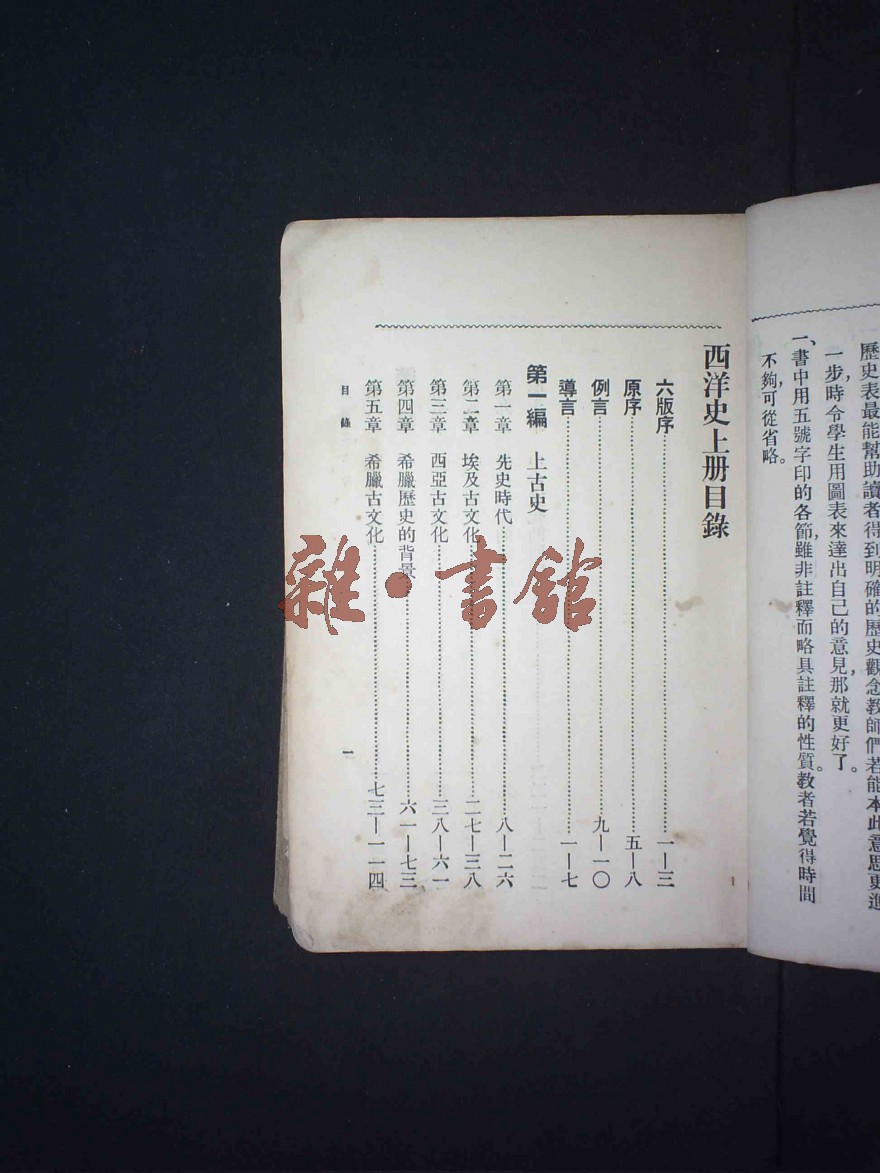 歷史表最能幫助讀者得到明確的歷史觀念教師們若能本此意思更進
一步時令學生用圖表來達出自己的意見，那就更好了。
一、書中用五號字印的各節，雖非註釋而略具註釋的性質，教者若覺得時間
不夠，可從省略。
西洋史上册目錄
六版序……一—三
原序……五—八
例言……九—一〇
導言……一—七
第一編 上古史
第一章 先史時代……八—二六
第二章 埃及古文化……二七—三八
第三章 西亞古文化……三八—六一
第四章 希臘歷史的背景……六一—七三
第五章 希臘古文化……七三—一一四
目錄
一
1
雜·書館